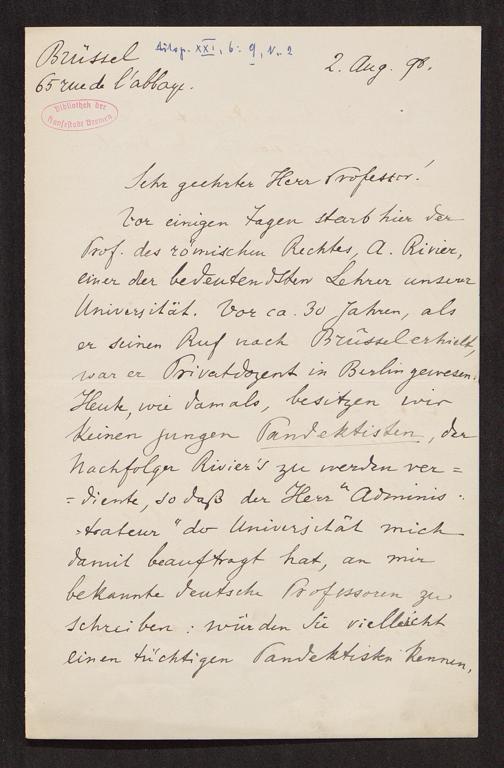 Brüssel
65 rue de l'abbaye.
Autogr. XXI, 6: 9, N. 2
2. Aug. 98.
Bibliothek der
Hansestadt Bremen
Sehr geehrter Herr Professor!
Vor einigen Tagen starb hier der
Prof. des römischen Rechtes, A. Rivier,
einer der bedeutendsten Lehrer unserer
Universität. Vor ca. 30 Jahren, als
er seinen Ruf nach Brüssel erhielt,
war er Privatdozent in Berlin gewesen.
Heute, wie damals, besitzen wir
keinen jungen Pandektisten, der
Nachfolger Rivier's zu werden ver=
=diente, so daß der Herr "Adminis-
-trateur" der Universität mich
damit beauftragt hat, an mir
bekannte deutsche Professoren zu
schreiben: würden Sie vielleicht
einen tüchtigen Pandektisten kennen,